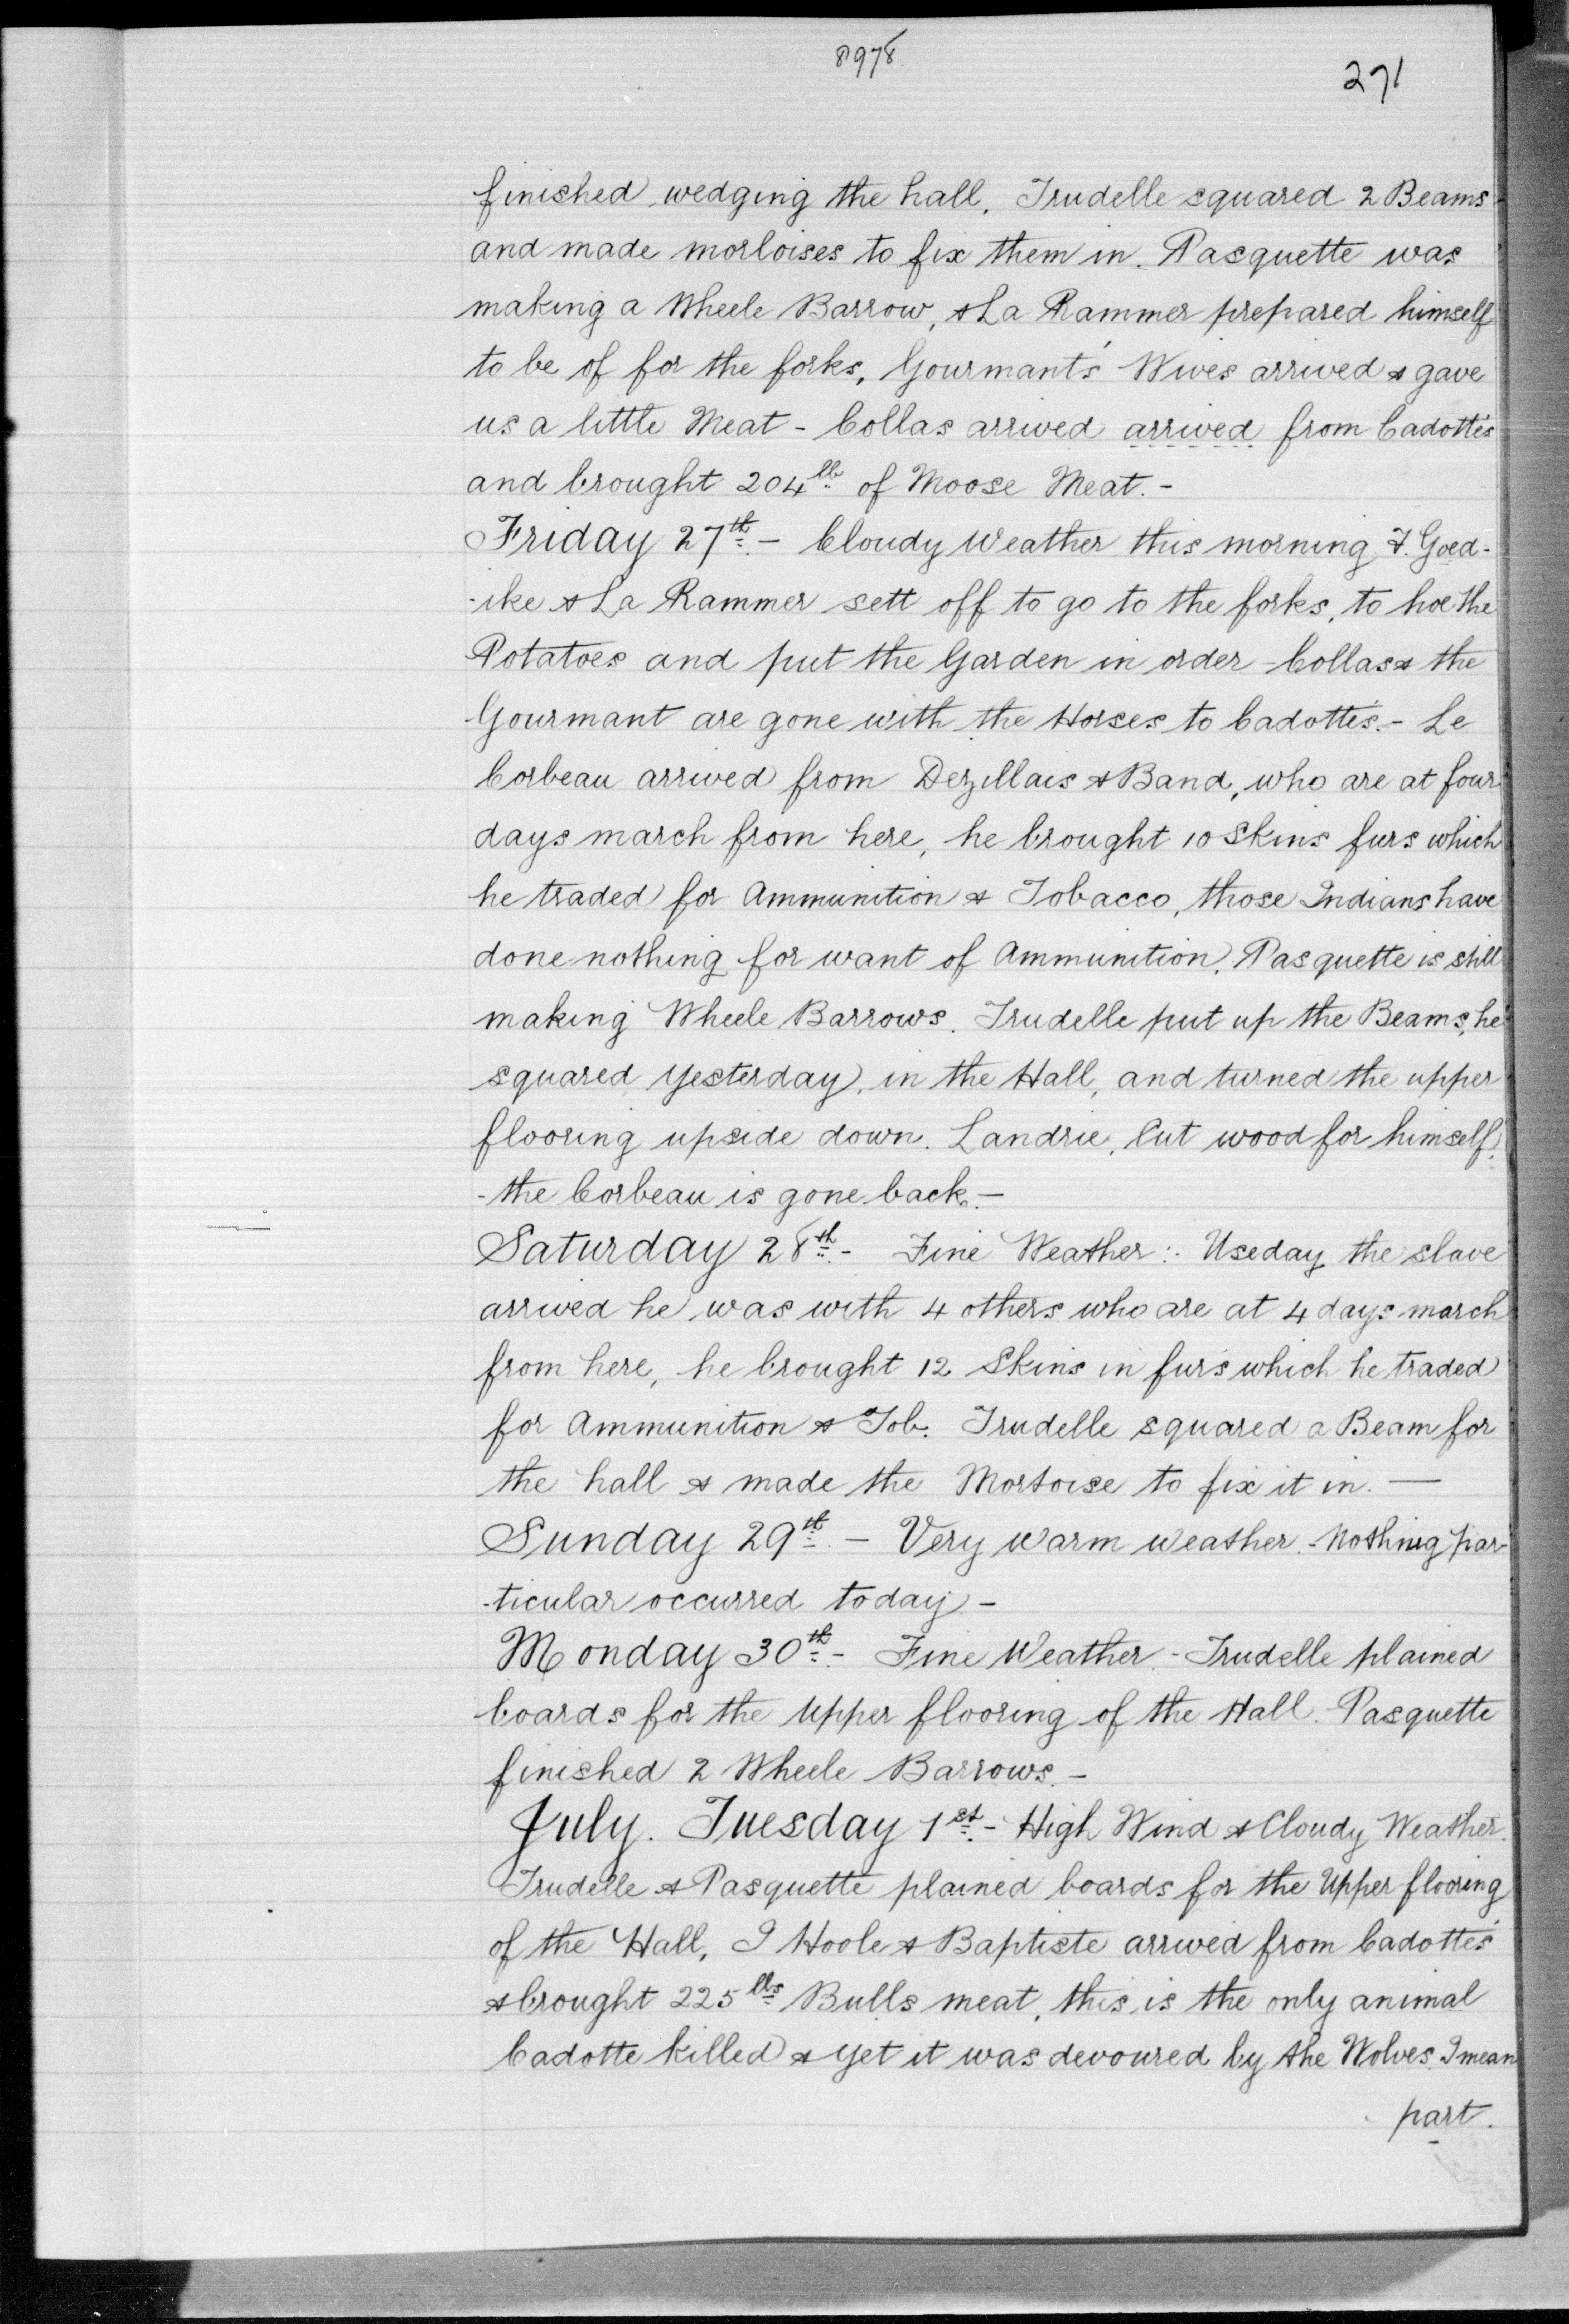 8978
271
finished wedging the hall, Trudelle squared 2 Beams
and made morloises to fix them in. Pasquette was
making a Wheele Barrow, & La Rammer prepared himself
to be of for the forks, Gourmant's Wives arrived & gave
us a little Meat - Collas arrived arrived from Cadotte's
and brought 204 lb of Moose Meat. -
Friday 27th. - Cloudy Weather this morning F. Goed-
-ike & La Rammer sett off to go to the forks, to hoe the
Potatoes and put the Garden in order - Collas & the
Gourmant are gone with the Horses to Cadotte's. - Le
Corbeau arrived from Dezillais & Band, who are at four
days march from here, he brought 10 Skins furs which
he traded for Ammunition & Tobacco, those Indians have
done nothing for want of Ammunition. Pasquette is still
making Wheele Barrows. Trudelle put up the Beams, he
squared yesterday, in the Hall, and turned the upper
flooring upside down. Landrie, Cut wood for himself,
- the Corbeau is gone back. -
Saturday 28th. - Fine Weather: Useday the slave
arrived he was with 4 others who are at 4 days march
from here, he brought 12 Skins in furs which he traded
for Ammunition & Tob. Trudelle squared a Beam for
the hall & made the Mortoise to fix it in. -
Sunday 29th. - Very warm weather. - Nothing par-
-ticular occurred today. -
Monday 30th. - Fine Weather. - Trudelle plained
boards for the Upper flooring of the Hall. Pasquette
finished 2 Wheele Barrows. -
July. Tuesday 1st. - High Wind & Cloudy Weather.
Trudelle & Pasquette plained boards for the Upper flooring
of the Hall, I Hoole & Baptiste arrived from Cadotte's
& brought 225 lbs Bulls meat, this is the only animal
Cadotte killed & yet it was devoured by the Wolves I mean
part.